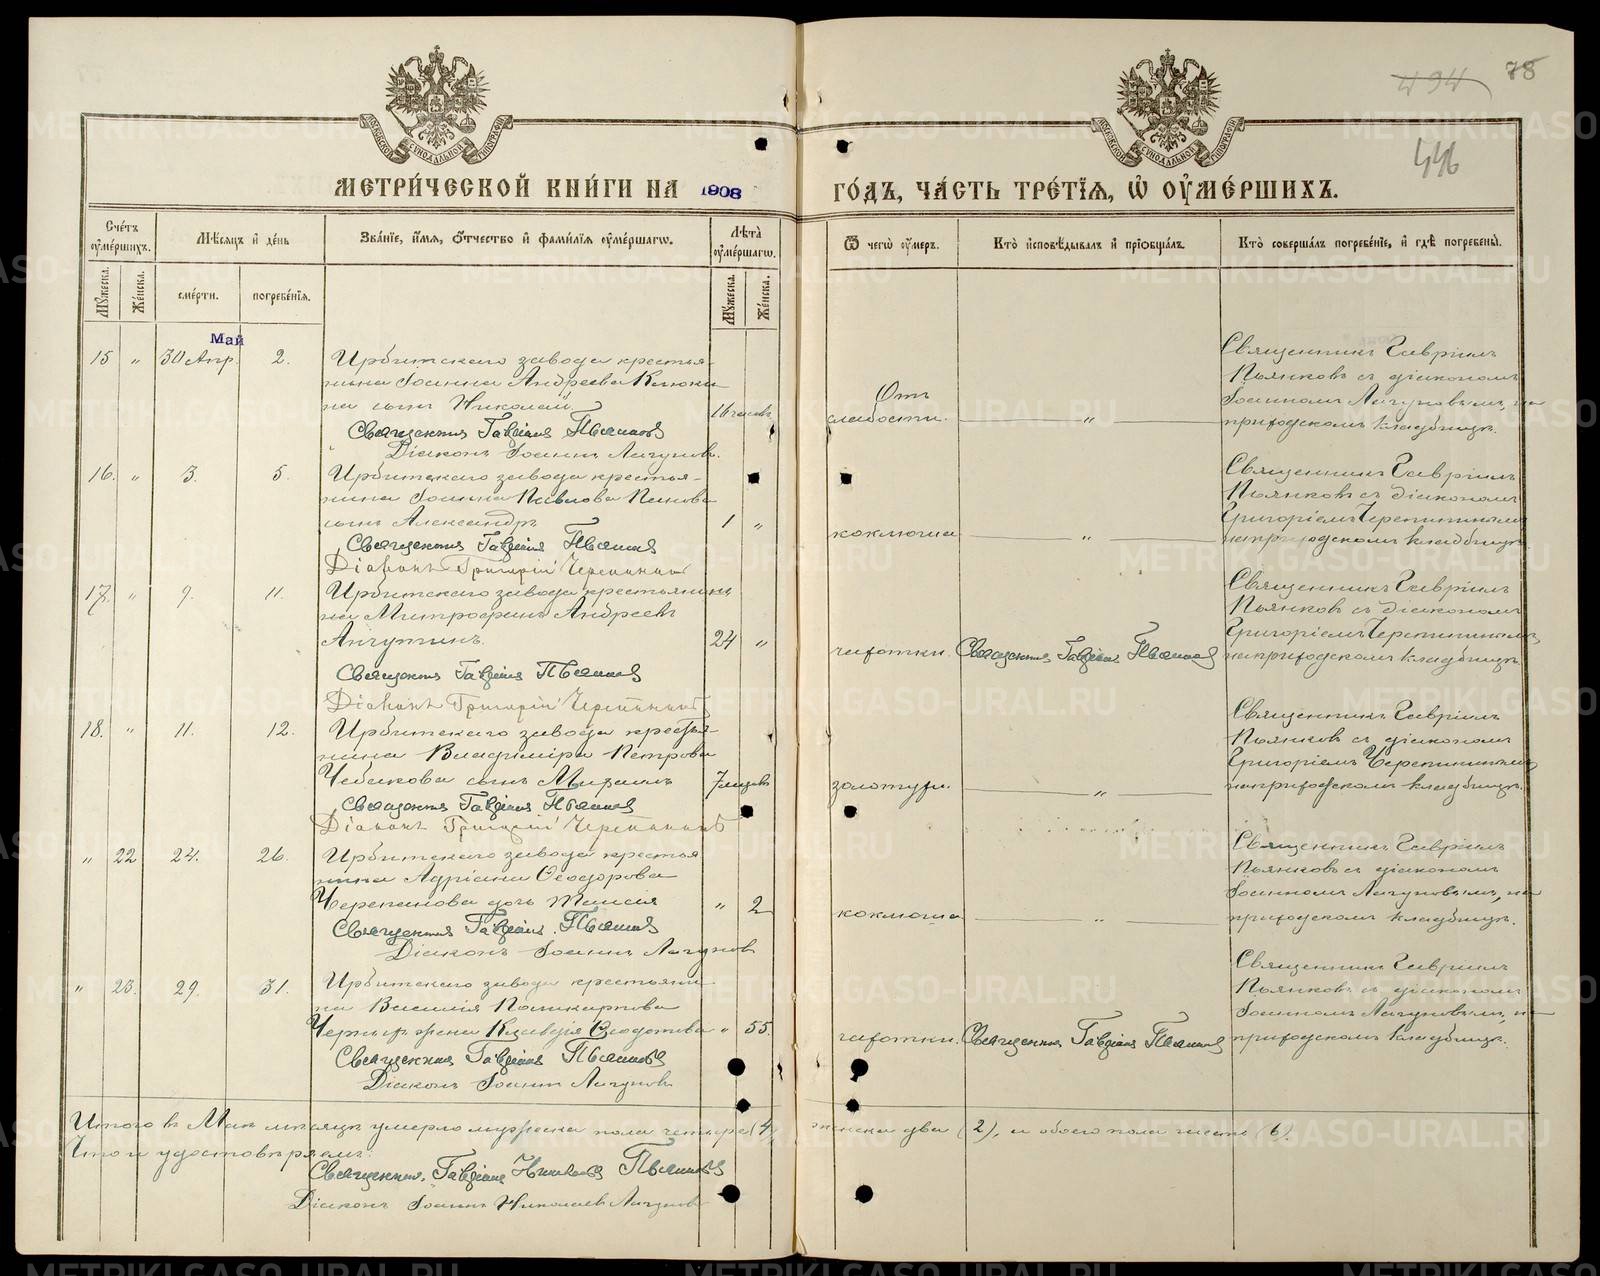 494 78
446
МОСКОВСКОЙ СѴНОДАЛЬНОЙ ТИПОГРАФІИ
МОСКОВСКОЙ СѴНОДАЛЬНОЙ ТИПОГРАФІИ
МЕТРИ́ЧЕСКОЙ КНИ́ГИ НА 1908 ГО́ДЪ, ЧА́СТЬ ТРЕ́ТЇѦ, Ѡ҆ ОУ҆МЕ́РШИХЪ.
Сче́тъ оу҆ме́ршихъ.
Мѣ́сѧцъ и҆ де́нь
Зва́нїе, и҆́мѧ, ѻ҆́тчество и҆ фами́лїѧ оу҆ме́ршагѡ.
Лѣ́та оу҆ме́ршагѡ.
Ѿ чегѡ̀ оу҆́меръ.
Кто̀ и҆сповѣ́дывалъ и҆ прїѡбща́лъ.
Кто̀ соверша́лъ погребе́нїе, и҆ гдѣ̀ погребены̀.
Мꙋ́жеска. Же́нска. сме́рти. погребе́нїѧ. Мꙋ́жеска. Же́нска.
Май
15 " 30 Апр. 2.
Ирбитскаго завода крестья-
нина Іоанна Андреева Клюки-
на сынъ Николай.
16 часовъ
Священникъ Гавріилъ Пьянковъ
Діаконъ Іоаннъ Лагуновъ.
Отъ
слабости. "
Священникъ Гавріилъ
Пьянковъ съ діакономъ
Іоанномъ Лагуновымъ, на
приходскомъ кладбищѣ.
16. " 3. 5.
Ирбитскаго завода крестья-
нина Іоанна Павлова Панова
сынъ Александръ
1 "
Священникъ Гавріилъ Пьянковъ
Діаконъ Григорій Черепанинъ
коклюша "
Священникъ Гавріилъ
Пьянковъ съ діакономъ
Григоріемъ
на приходскомъ кладбищѣ.
17. " 9. 11.
Ирбитскаго завода крестьянинъ
Митрофанъ Андреевъ
24 "
Священникъ Гавріилъ Пьянковъ
Діаконъ Григорій
чахотки. Священникъ Гавріилъ Пьянковъ
Священникъ Гавріилъ
Пьянковъ съ діакономъ
Григоріемъ
на приходскомъ кладбищѣ.
18. " 11. 12.
Ирбитскаго завода крестья-
нина Владиміра Петрова
Чебакова сынъ Михаилъ
7 мѣсяц.
Священникъ Гавріилъ Пьянковъ
Діаконъ Григорій
золотухи. "
Священникъ Гавріилъ
Пьянковъ съ діакономъ
Григоріемъ
на приходскомъ кладбищѣ.
" 22 24. 26.
Ирбитскаго завода крестья
нина Адріана Ѳеодорова
Черепанова дочь Таисія
" 2
Священникъ Гавріилъ Пьянковъ
Діаконъ Іоаннъ Лагуновъ
коклюша "
Священникъ Гавріилъ
Пьянковъ съ діакономъ
Іоанномъ Лагуновымъ, на
приходскомъ кладбищѣ.
" 23. 29. 31.
Ирбитскаго завода крестьяни-
на Василія Поликарпова
Черныхъ жена Клавдія Ѳеодотова
" 55.
Священникъ Гавріилъ Пьянковъ
Діаконъ Іоаннъ Лагуновъ
чахотки. Священникъ Гавріилъ Пьянковъ
Священникъ Гавріилъ
Пьянковъ съ діакономъ
Іоанномъ Лагуновымъ, на
приходскомъ кладбищѣ.
Итого въ Маѣ мѣсяцѣ умерло мужеска пола четыре (4), женска два (2), и обоего пола шесть (6).
Что и удостовѣряемъ:
Священникъ Гавріилъ Пьянковъ
Діаконъ Іоаннъ Николаевъ Лагуновъ
METRIKI.GASO-URAL.RU